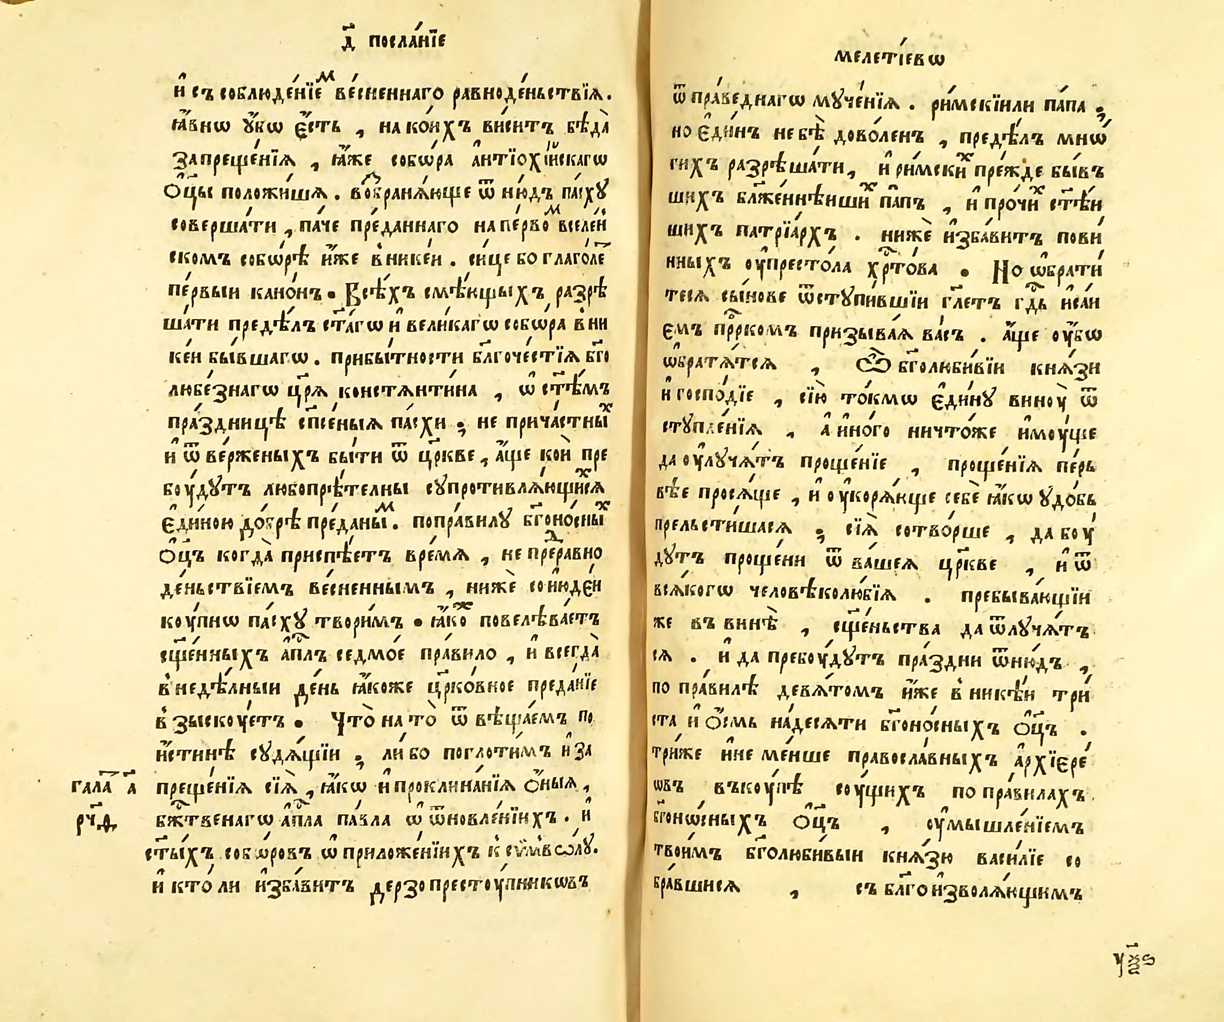 д҃ посла́нїе
и҆ съ соблюде́нїеⷨ ве́сненнаго равноде́ньствїѧ.
ꙗ҆́внѡ ᲂу҆́бѡ є҆́сть , на кои́хъ виси́тъ бѣда̀
запреще́нїѧ , ꙗ҆́же собѡ́ра а҆нтїохі́йскагѡ
ѻ҆тцы̀ положи́шѧ. вⸯзбранѧ́юще ѿ ню́дъ па́сху
соверша́ти , па́че пре́даннаго на пе́рвоⷨ вселе́н
скомъ собѡ́рѣ и҆́же в̾ нике́и . си́це бо глаго́ле
пе́рвыи кано́нъ. Всѣ́хъ смѣ́ющыхъ разрѣ
ша́ти предѣ́лъ ст҃а́гѡ и҆ вели́кагѡ собѡ́ра в̾ ни
ке́и бы́вшагѡ . прибы́тности бл҃гоче́стїѧ бг҃о
любе́знагѡ цр҃ѧ̀ констѧнти́на , ѡ҆ ст҃ѣ́мъ
пра́здницѣ сп҃се́ныѧ па́схи ; не прича́стныⷯ
и҆ ѿ ве́рженыхъ бы́ти ѿ цр҃кве , а҆́ще кои̑ пре
бꙋ́дутъ любопрѣ́телны сꙋпротивлѧ́ющиⷯсѧ
є҆ди́ною до́брѣ пре́даныⷨ. по пра́вилꙋ бг҃оно́сныⷯ
ѻ҆тц҃ъ когда̀ приспѣ́етъ вре́мѧ , не преⷣравно
де́ньствїемъ ве́сненнымъ , нижѐ со и҆юде́и
кꙋ́пнѡ па́сху твори́мъ . ꙗ҆́коⷤ повелѣва́етъ
сщ҃е́нныхъ а҆пⷭ҇лъ седмо́е пра́вило , и҆ всегда̀
в̾ недѣ́лныи де́нь ꙗ҆́коже цр҃ко́вное преда́нїе
взыскꙋ́етъ . Что̀ на то̀ ѿ вѣща́емъ по
и҆́стинѣ сꙋдѧ́щїи ; ли́бо поглоти́мъ и҆ за
преще́нїѧ сїѧ̀ , ꙗ҆́кѡ и҆ проклина́нїѧ ѻ҆́ныѧ ,
бжⷭ҇твенагѡ а҆пⷭ҇ла па́вла ѡ҆ ѿновле́нїихъ . и҆
ст҃ы́хъ собѡ́ровъ ѡ҆ приложе́нїихъ к̾ сѵ́мвѡлꙋ.
и҆ кто̀ ли и҆зба́витъ де́рзопрестꙋ́пникѡвъ
гала҃ а҃
рч҃д
меле́тїевѡ
ѿ пра́веднагѡ мꙋче́нїѧ . ри́мскїи ли па́па ;
но є҆ди́нъ не бѣ̀ дово́ленъ , предѣ́лъ мнѡ́
гихъ разрѣша́ти , и҆ ри́мскиⷯ пре́жде бы́въ
шихъ бл҃же́ннѣишиⷯ па́пъ , и҆ про́чиⷯ ст҃ѣ́и
шихъ патрїа́рхъ . нижѐ и҆зба́витъ пови́
нныхъ ᲂу҆ престо́ла хрⷭ҇то́ва . Но ѡ҆брати́
тесѧ сы́нове ѿступи́вшїи гл҃етъ гдⷭ҇ь и҆саи́
емъ прⷪ҇ркомъ призыва́ѧ ва́съ . а҆́ще ᲂу҆́бѡ
ѡ҆братѧ́тсѧ , Ѽ бг҃олюби́вїи кнѧ́зи
и҆ госпо́дїе , сїю̀ то́кмѡ є҆ди́нꙋ винꙋ̀ ѿ
стꙋпле́нїѧ , а҆ и҆но́го ничто́же и҆мꙋ́ще
да ᲂу҆лꙋча́тъ проще́нїе , проще́нїѧ пе́рь
вѣе просѧ́ще , и҆ ᲂу҆корѧ́юще себѐ ꙗ҆́кѡ ᲂу҆до́бь
прельсти́шасѧ ; сїѧ̀ сотво́рше , да бꙋ́
дꙋтъ проще́ни ѿ ва́шеѧ цр҃кве , и҆ ѿ
всѧ́когѡ человѣколю́бїѧ . пребыва́ющїи
же въ винѣ̀ , сщ҃е́ньства да ѿлꙋча́тъ
сѧ . и҆ да пребꙋ́дꙋтъ пра́здни ѿню́дъ ,
по пра́вилѣ девѧ́томъ и҆́же в̾ нике́и три́
ста и҆ ѻ҆́смь на́десѧти бг҃оно́сныхъ ѻ҆тц҃ъ .
три́же и҆ не ме́нше правосла́вныхъ а҆рхїере́
ѡвъ вкꙋ́пѣ сꙋ́щихъ по пра́вилахъ
бг҃онѡ́сныхъ ѻ҆тц҃ъ , ᲂу҆мышле́нїемъ
твои́мъ бг҃олюби́выи кнѧ́зю васи́лїе со
бра́вшисѧ , съ бл҃гоизволѧ́ющимъ